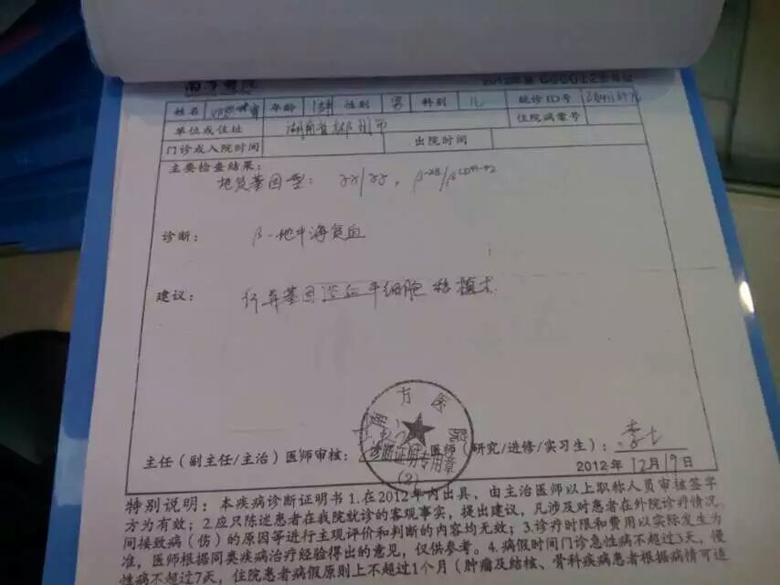 南方医院
姓名 年龄 性别 男 科别 儿 就诊ID号
单位或住址 湖南省郴州市 住院病案号
门诊或入院时间 出院时间
主要检查结果:
地贫基因型: αα/αα,
诊断: β-地中海贫血
建议: 行异基因造血干细胞移植术
方医院
诊断证明专用章
(2)
主任(副主任/主治)医师审核: 医师(研究/进修/实习生):
2012年12月19日
特别说明:本疾病诊断证明书1.在2012年内出具,由主治医师以上职称人员审核签字
方为有效;2.应只陈述患者在我院就诊的客观事实,提出建议,凡涉及对患者在外院诊疗情况、
间接致病(伤)的原因等进行主观评价和判断的内容均无效;3.诊疗时限和费用以实际发生为
准,医师根据同类疾病治疗经验得出的意见,仅供参考。4.病假时间门诊急性病不超过3天,慢
性病不超过7天,住院患者病假原则上不超过1个月(肿瘤及结核、骨科疾病患者根据病情可适